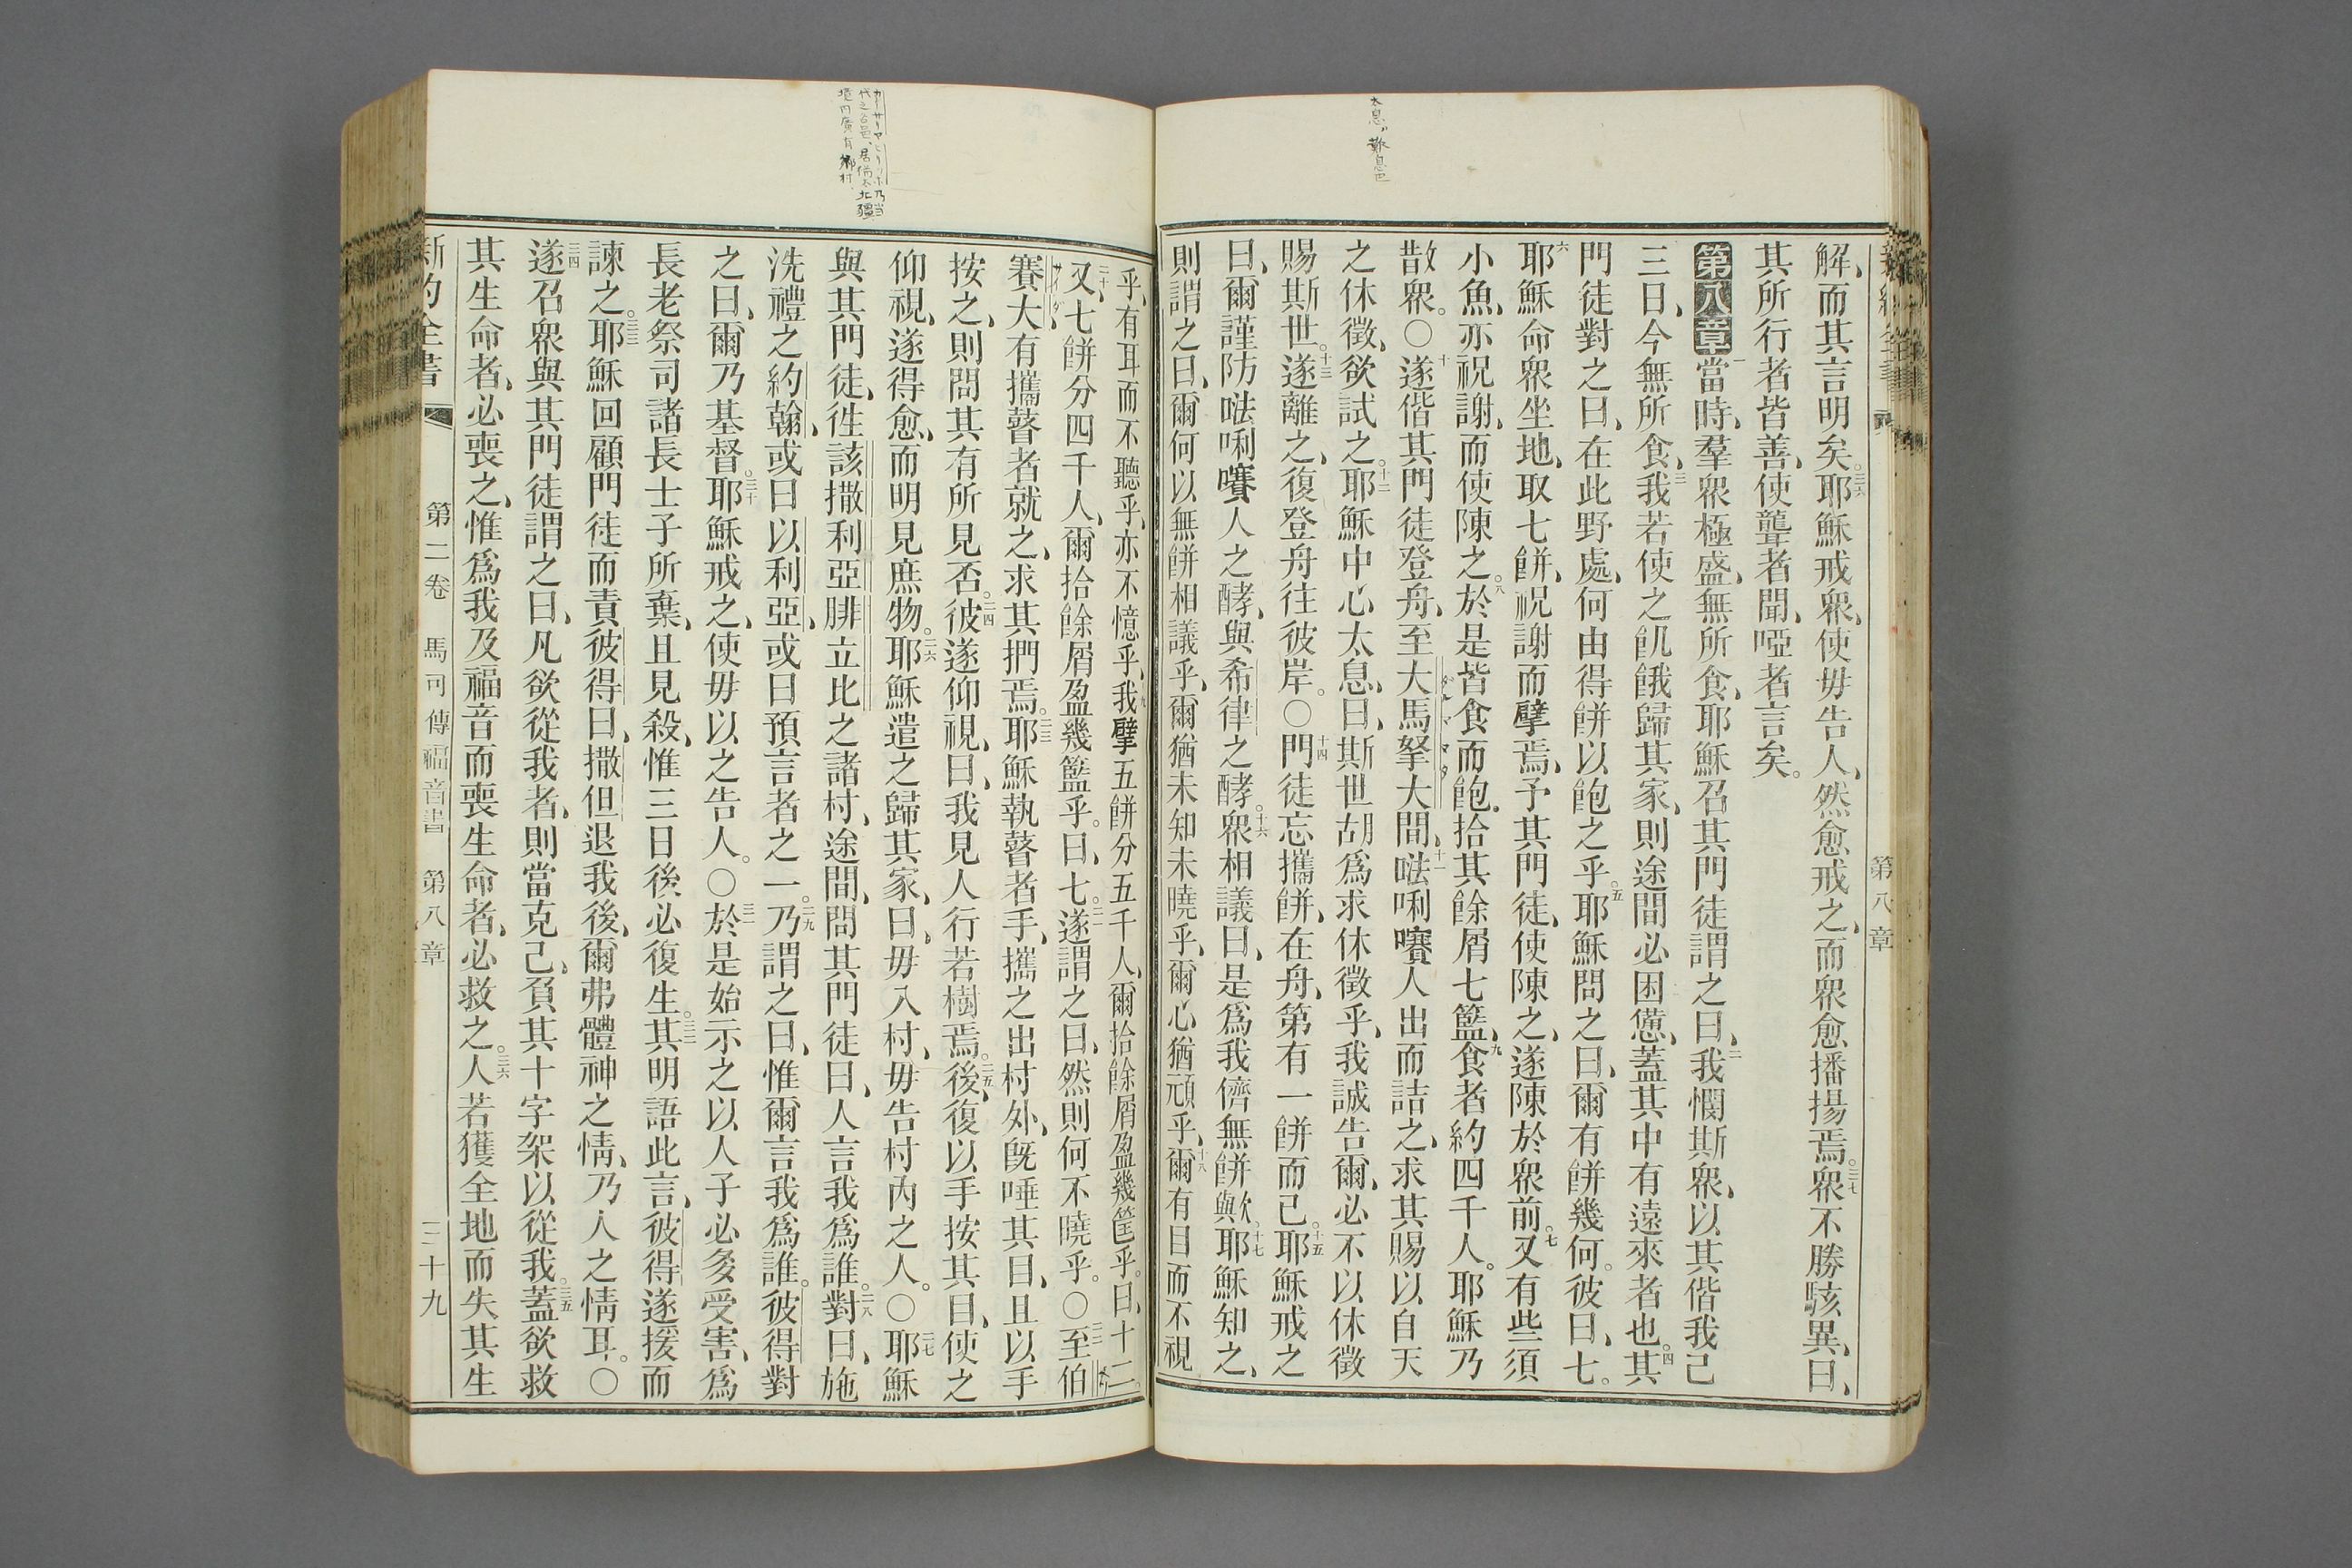 太息ハ歎息也
第八章
解、而其言明矣。三六耶穌戒衆、使毋告人、然愈戒之、而衆愈播揚焉。三七衆不勝駭異、曰、
其所行者皆善、使聾者聞、啞者言矣。
第八章一當時、羣衆極盛、無所食、耶穌召其門徒謂之曰、二我憫斯衆、以其偕我已
三日、今無所食、三我若使之飢餓歸其家、則途間必困憊、蓋其中有遠來者也。四其
門徒對之曰、在此野處、何由得餅以飽之乎。五耶穌問之曰、爾有餅幾何。彼曰、七。
六耶穌命衆坐地、取七餅、祝謝而擘焉、予其門徒、使陳之、遂陳於衆前。七又有些須
小魚、亦祝謝、而使陳之。八於是皆食而飽。拾其餘屑七籃、九食者約四千人。耶穌乃
散衆。〇十遂偕其門徒登舟、至大馬拏大間、十一𠵽唎嚽人出而詰之、求其賜以自天
之休徵、欲試之。十二耶穌中心太息、曰、斯世胡爲求休徵乎、我誠告爾、必不以休徵
賜斯世。十三遂離之、復登舟往彼岸。〇十四門徒忘攜餅、在舟、第有一餅而已。十五耶穌戒之
曰、爾謹防𠵽唎嚽人之酵、與希律之酵。十六衆相議曰、是爲我儕無餅與歟。十七耶穌知之、
則謂之曰、爾何以無餅相議乎、爾猶未知未曉乎、爾心猶頑乎、十八爾有目而不視
カイサリヤピリポ乃当
代之名邑、居猶太北疆
境内廣有鄉村
乎、有耳而不聽乎、亦不憶乎、我擘五餅分五千人、爾拾餘屑盈幾筐乎。曰、十二。
二十又、七餅分四千人、爾拾餘屑盈幾籃乎。曰、七。二一遂謂之曰、然則何不曉乎。〇二二至伯
賽大、有攜瞽者就之、求其捫焉。二三耶穌執瞽者手、攜之出村外、旣唾其目、且以手
按之、則問其有所見否。二四彼遂仰視、曰、我見人行若樹焉。二五後、復以手按其目、使之
仰視、遂得愈、而明見庶物。二六耶穌遣之歸其家、曰、毋入村、毋告村內之人。〇二七耶穌
與其門徒、徃該撒利亞腓立比之諸村、途間、問其門徒曰、人言我爲誰。二八對曰、施
洗禮之約翰、或曰以利亞、或曰預言者之一。二九乃謂之曰、惟爾言我爲誰。彼得對
之曰、爾乃基督。三十耶穌戒之、使毋以之告人。〇三一於是始示之以人子必多受害、爲
長老祭司諸長士子所棄、且見殺、惟三日後必復生。三二其明語此言、彼得遂援而
諫之。三三耶穌回顧門徒而責彼得曰、撒但退我後、爾弗體神之情、乃人之情耳。〇
三四遂召衆與其門徒謂之曰、凡欲從我者、則當克己、負其十字架以從我。三五蓋欲救
其生命者、必喪之、惟爲我及福音而喪生命者、必救之。三六人若獲全地而失其生
新約全書　第二卷　馬可傳福音書　第八章　三十九